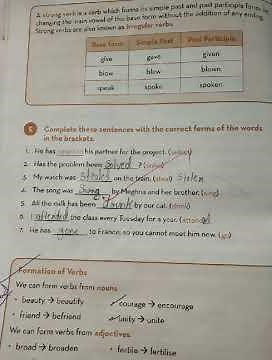 A strong verb is a verb which forms its simple past and past participle forms by
changing the main vowel of the base form without the addition of any ending.
Strong verbs are also known as irregular verbs.
Base Form Simple Past Past Participle
give gave given
blow blew blown
speak spoke spoken
C Complete these sentences with the correct forms of the words
in the brackets.
1. He has his partner for the project.
2. Has the problem been solved ? (solve)
3. My watch was stolen on the train. (steal) stolen
4. The song was sung by Meghna and her brother. (sing)
5. All the milk has been drunk by our cat. (drink)
6. I attended the class every Tuesday for a year. (attend)
7. He has gone to France, so you cannot meet him now. (go)
Formation of Verbs
We can form verbs from nouns
• beauty → beautify courage → encourage
• friend → befriend unity → unite
We can form verbs from adjectives.
• broad → broaden • fertile → fertilise